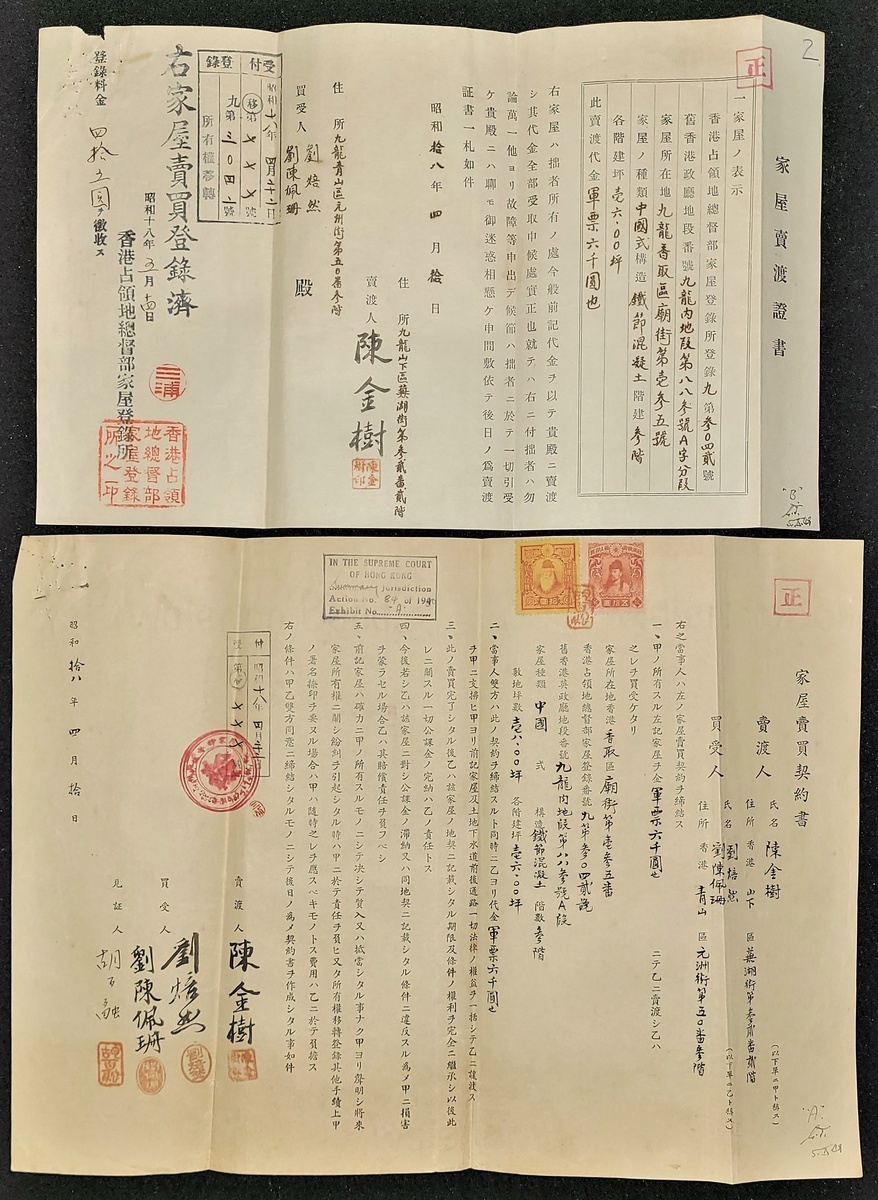 2
正
家屋賣渡證書
一家屋ノ表示
香港占領地總督部家屋登錄所登錄九第參〇四貳號
舊香港政廳地段番號九龍內地段第八八參號A字分段
家屋所在地九龍香取區廟街第壹參五號
家屋ノ種類中國式構造鐵筋混凝土階建參階
各階建坪壹六.〇〇坪
此賣渡代金軍票六千圓也
右家屋ハ拙者所有ノ處今般前記代金ヲ以テ貴殿ニ賣渡
シ其代金全部受取申候處實正也就テハ右ニ付拙者ハ勿
論萬一他ヨリ故障等申出デ候節ハ拙者ニ於テ一切引受
ケ貴殿ニハ聊モ御迷惑相懸ケ申間敷依テ後日ノ爲賣渡
証書一札如件
昭和拾八年四月拾日
住所九龍山下區蕪湖街第參貳番貳階
賣渡人 陳金樹
住所九龍青山區元州街第五〇番參階
買受人 劉焙然
劉陳佩珊 殿
受付 登錄
昭和十八年四月二十二日
移第×××號
九第三〇四二號
所有權移轉
右家屋賣買登錄濟
昭和十八年5月十四日
香港占領地總督部家屋登錄所
三浦
香港占領
地總督部
家屋登錄
所之印
登錄料金 四拾五圓ヲ徵收ス
"B"
正
家屋賣買契約書
賣渡人
氏名 陳金樹
住所 香港 山下 區 蕪湖街第參貳番貳階
(以下單ニ甲ト稱ス)
買受人
氏名 劉焙然
劉陳佩珊
住所 香港 青山 區 元洲街第五〇番參階
(以下單ニ乙ト稱ス)
右之當事人ハ左ノ家屋賣買契約ヲ締結ス
一、甲ノ所有スル左記家屋ヲ金軍票六千圓也 ニテ乙ニ賣渡シ乙ハ
之レヲ買受ケタリ
家屋所在地香港香取區廟街第壹參五番
香港占領地總督部家屋登錄番號九第參〇四貳號
舊香港英政廳地段番號九龍內地段第八八參號A段
家屋種類 中國 式 構造鐵筋混凝土 階數參階
敷地坪數壹八.〇〇坪 各階建坪壹六.〇〇坪
二、當事人雙方ハ此ノ契約ヲ締結スルト同時ニ乙ヨリ代金軍票六千圓也
ヲ甲ニ支拂ヒ甲ヨリ前記家屋及土地下水道前後通路一切法律ノ權益ヲ一括シテ乙ニ讓渡ス
三、此ノ賣買完了シタル後乙ハ該家屋ノ地契ニ記載シタル期限及條件ノ權利ヲ完全ニ繼承シ以後此
レニ關スル一切公課金ノ完納ハ乙ノ責任トス
四、今後若シ乙ハ該家屋ニ對シ公課金ノ滯納又ハ同地契ニ記載シタル條件ニ違反スル爲メ甲ニ損害
ヲ蒙ラセル場合乙ハ其賠償責任ヲ負フベシ
五、前記家屋ハ確カニ甲ノ所有スルモノニシテ決シテ質入又ハ抵當シタル事ナク甲ヨリ聲明シ將來
家屋所有權ニ關シ紛糾ヲ引起シタル時ハ甲ニ於テ責任ヲ負ヒ又タ所有權移轉登錄其他手續上甲
ノ署名捺印ヲ要スル場合ハ甲ハ隨時之レヲ應スベキモノトス費用ハ乙ニ於テ負擔ス
右ノ條件ハ甲乙雙方同意ニ締結シタルモノニシテ後日ノ爲メ契約書ヲ作成シタル事如件
IN THE SUPREME COURT
OF HONG KONG
Summary Jurisdiction
Action No. 84 of 19
Exhibit No. "A"
昭和拾八年四月拾日
賣渡人 陳金樹
買受人 劉焙然
劉陳佩珊
見証人
"A"